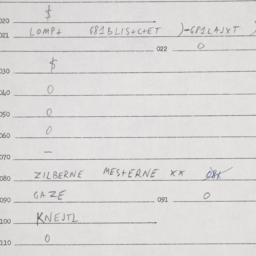 020 $
021 LOMP+ G81BLIS+C+ET )-GP1LAJXT )
022 0
030 $
040 0
050 0
060 0
070 -
080 ZILBERNE MES+ERNE XX
090 GAZE 091 0
100 KNEJTL
110 0